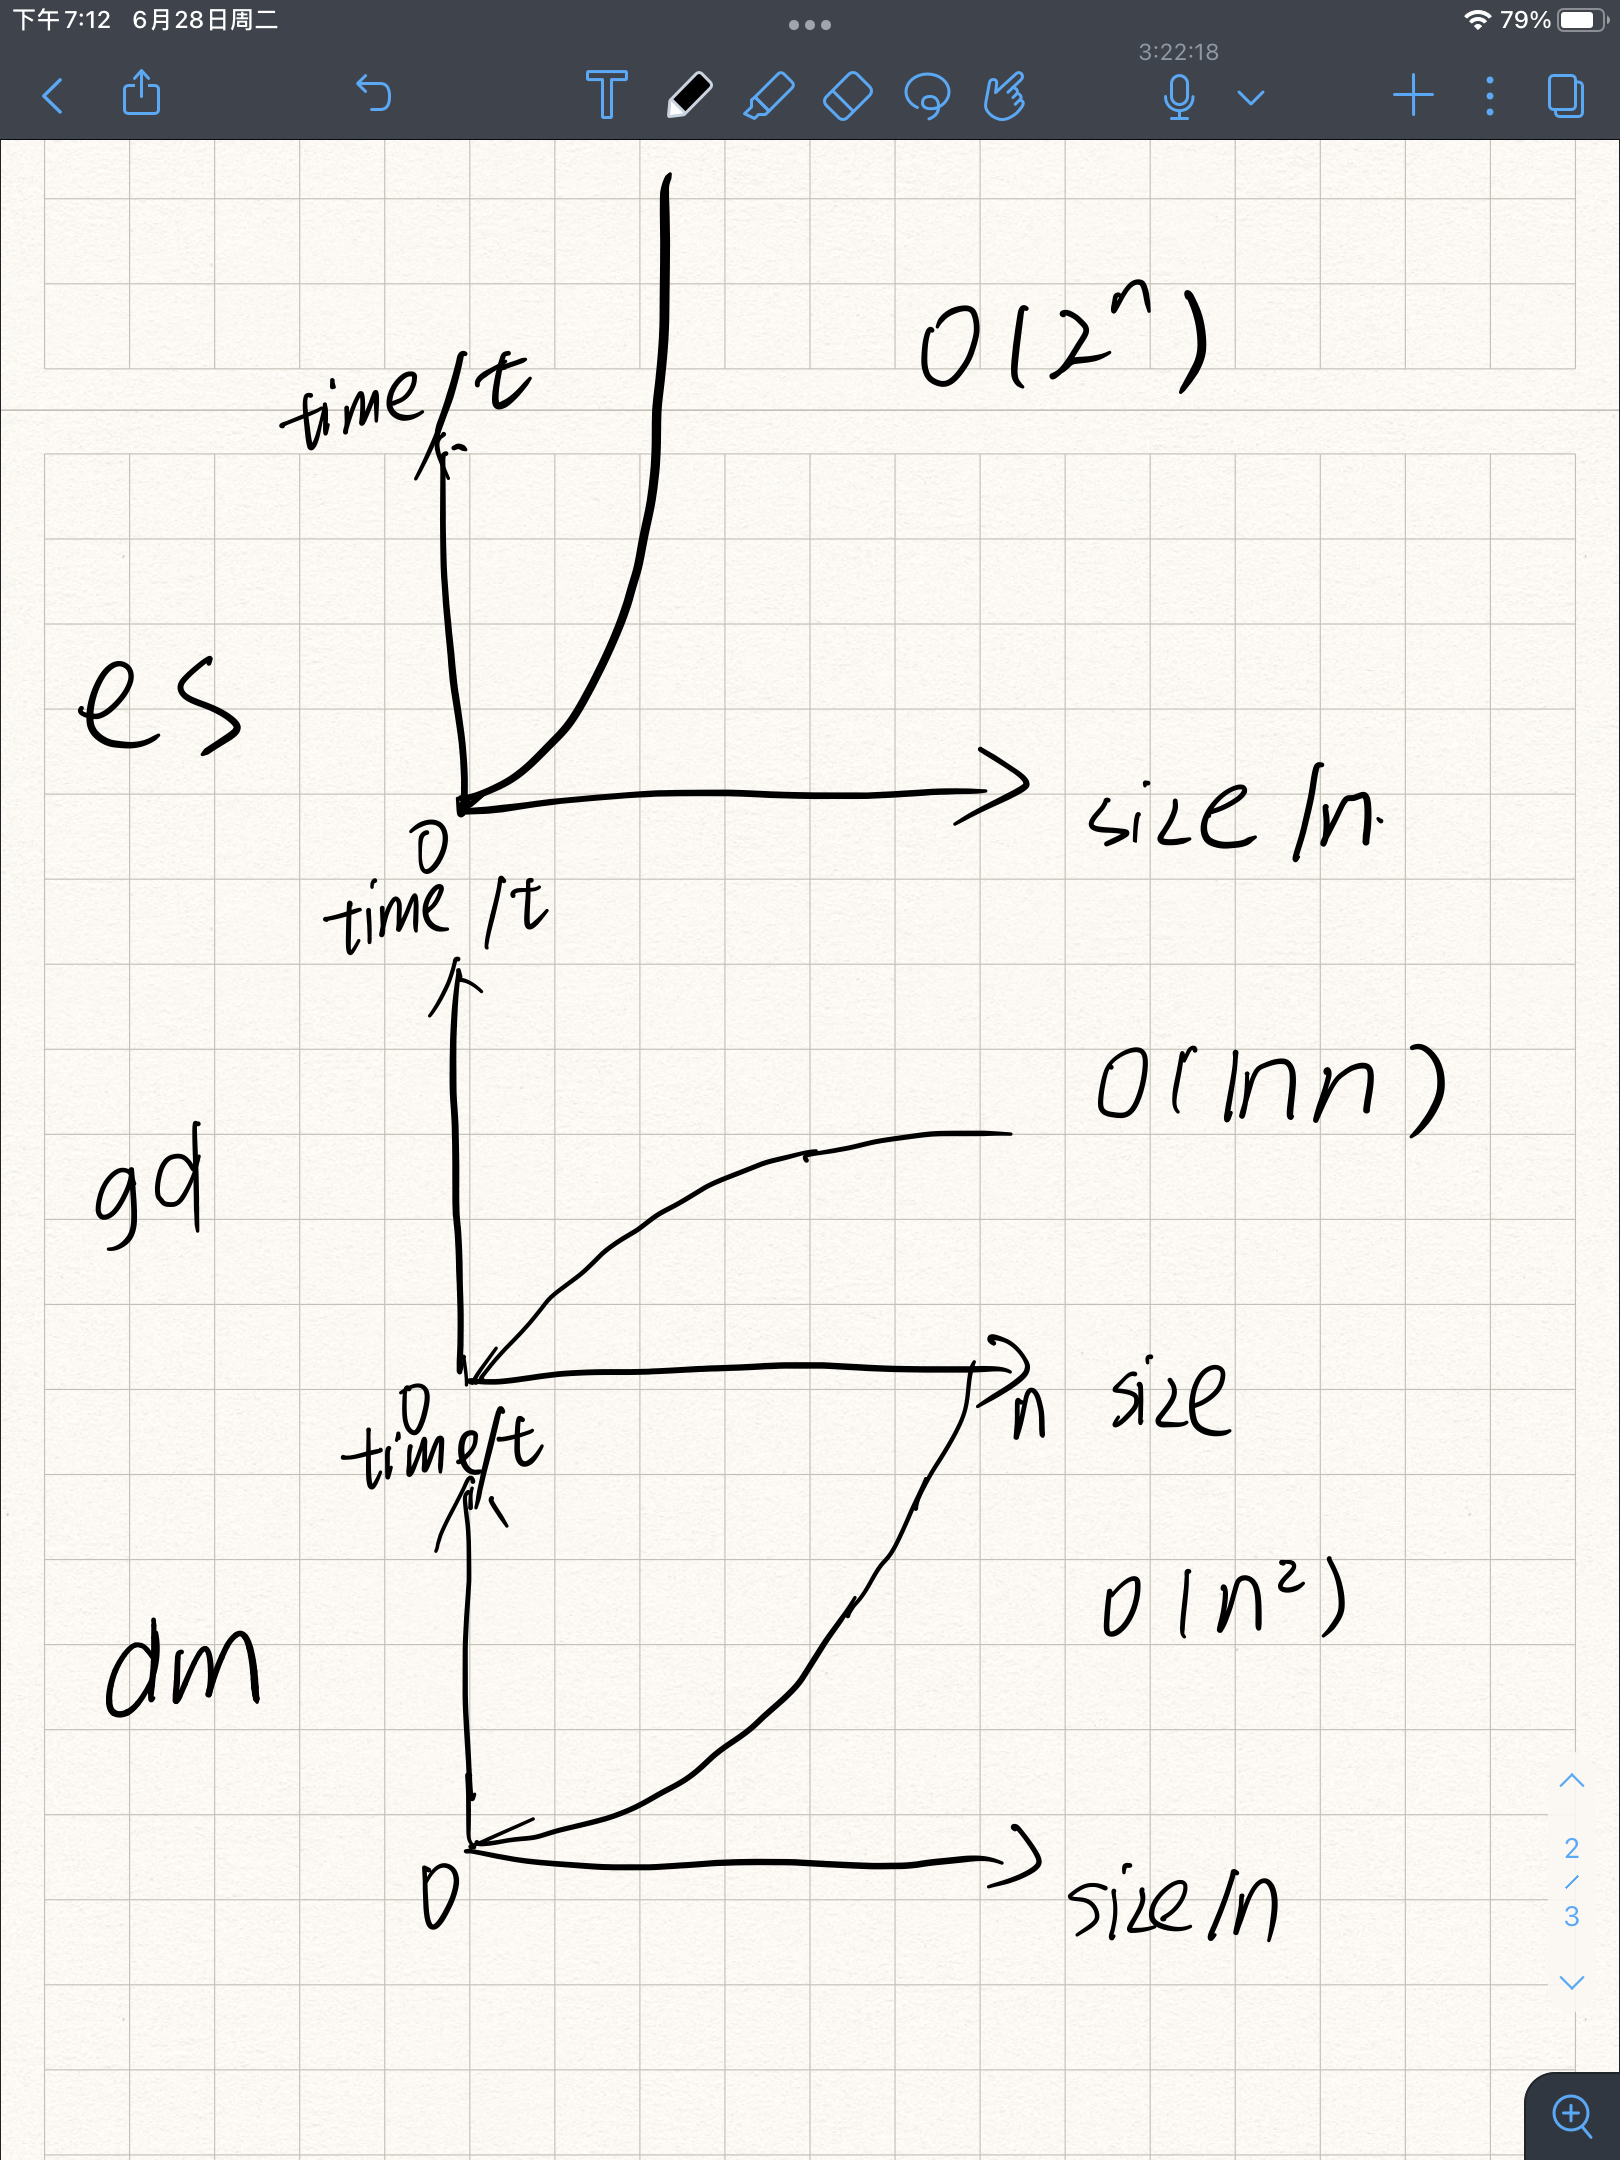 下午7:12 6月28日周二
79%
3:22:18
O(2ⁿ)
time/t
es
size/n
0
time/t
O(ln n)
gd
n size
0
time/t
O(n²)
dm
2
/
3
0
size/n